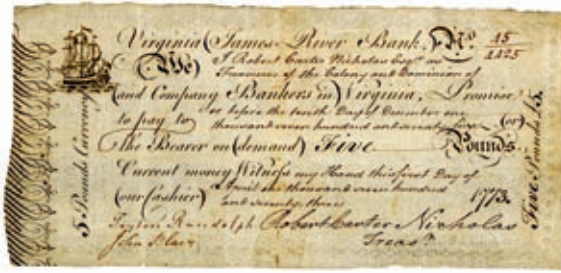 Virginia (James-River Bank,) No. 15
1425
(We) I Robert Carter Nicholas Esqr. as
Treasurer of the Colony and Dominion of
(and Company Bankers in) Virginia, Promise
to pay to or before the tenth Day of December one
thousand seven hundred and seventy five (or)
the Bearer on (demand) Five Pounds,
Current money Witness my Hand this first Day of
(our Cashier) April one thousand seven hundred 1773.
and seventy three
Peyton Randolph Robert Carter Nicholas
John Blair Treasr.
5 Pounds Currency
Five Pounds £5.